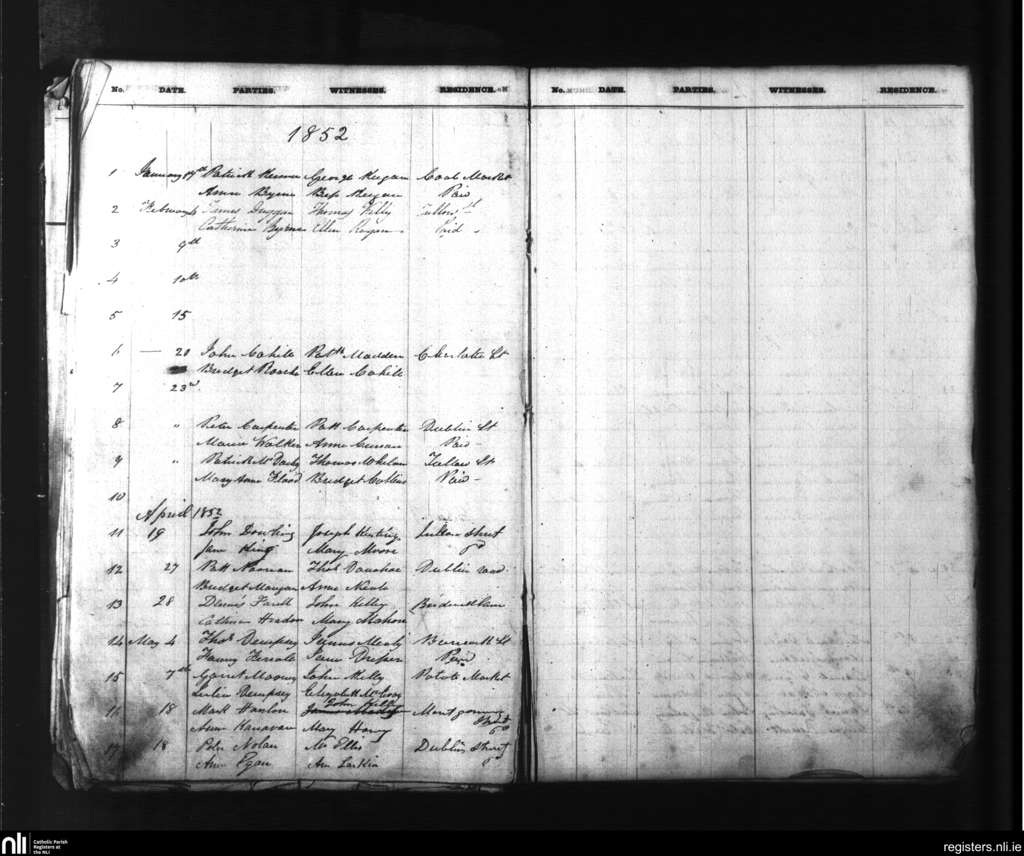 No. DATE. PARTIES. WITNESSES. RESIDENCE.
No. DATE. PARTIES. WITNESSES. RESIDENCE.
1852
1 January 17th Patrick George Keegan Coal Market
Anne Byrne Bess Keegan Paid
2 February James Duggan Thomas Kelly Tullow St
Catherine Byrne Ellen Paid
3 9th
4 10th
5 15
6 — 20 John Cahill Patk Madden Charlotte St
Bridget Roache Ellen Cahill
7 23rd
8 " Peter Carpenter Patt Carpenter Dublin St
Maria Walker Anne Paid
9 " Patrick Thomas Whelan Tullow St
Mary Anne Flood Bridget Collins Paid
10
April 1852
11 19 John Dowling Joseph Keating Tullow Street
Jane King Mary Moore
12 27 Patt Noonan Thos Donohoe Dublin road
Bridget Mangan Anne Neale
13 28 Denis Farell John Kelly
Catherine Mary Mahon
14 May 4 Thos Dempsey James Mealy Burrell St
Fanny Jane Paid
15 7th Garret Mooney John Kelly Potato Market
Dempsey Elizabeth McEvoy
16 18 Mark Hanlon John Montgomery Street
Anne Kanavan Mary
17 18 Peter Nolan Mr Ellis Dublin Street
Ann Egan Ann Larkin
nli
Catholic Parish
Registers at
the NLI
registers.nli.ie